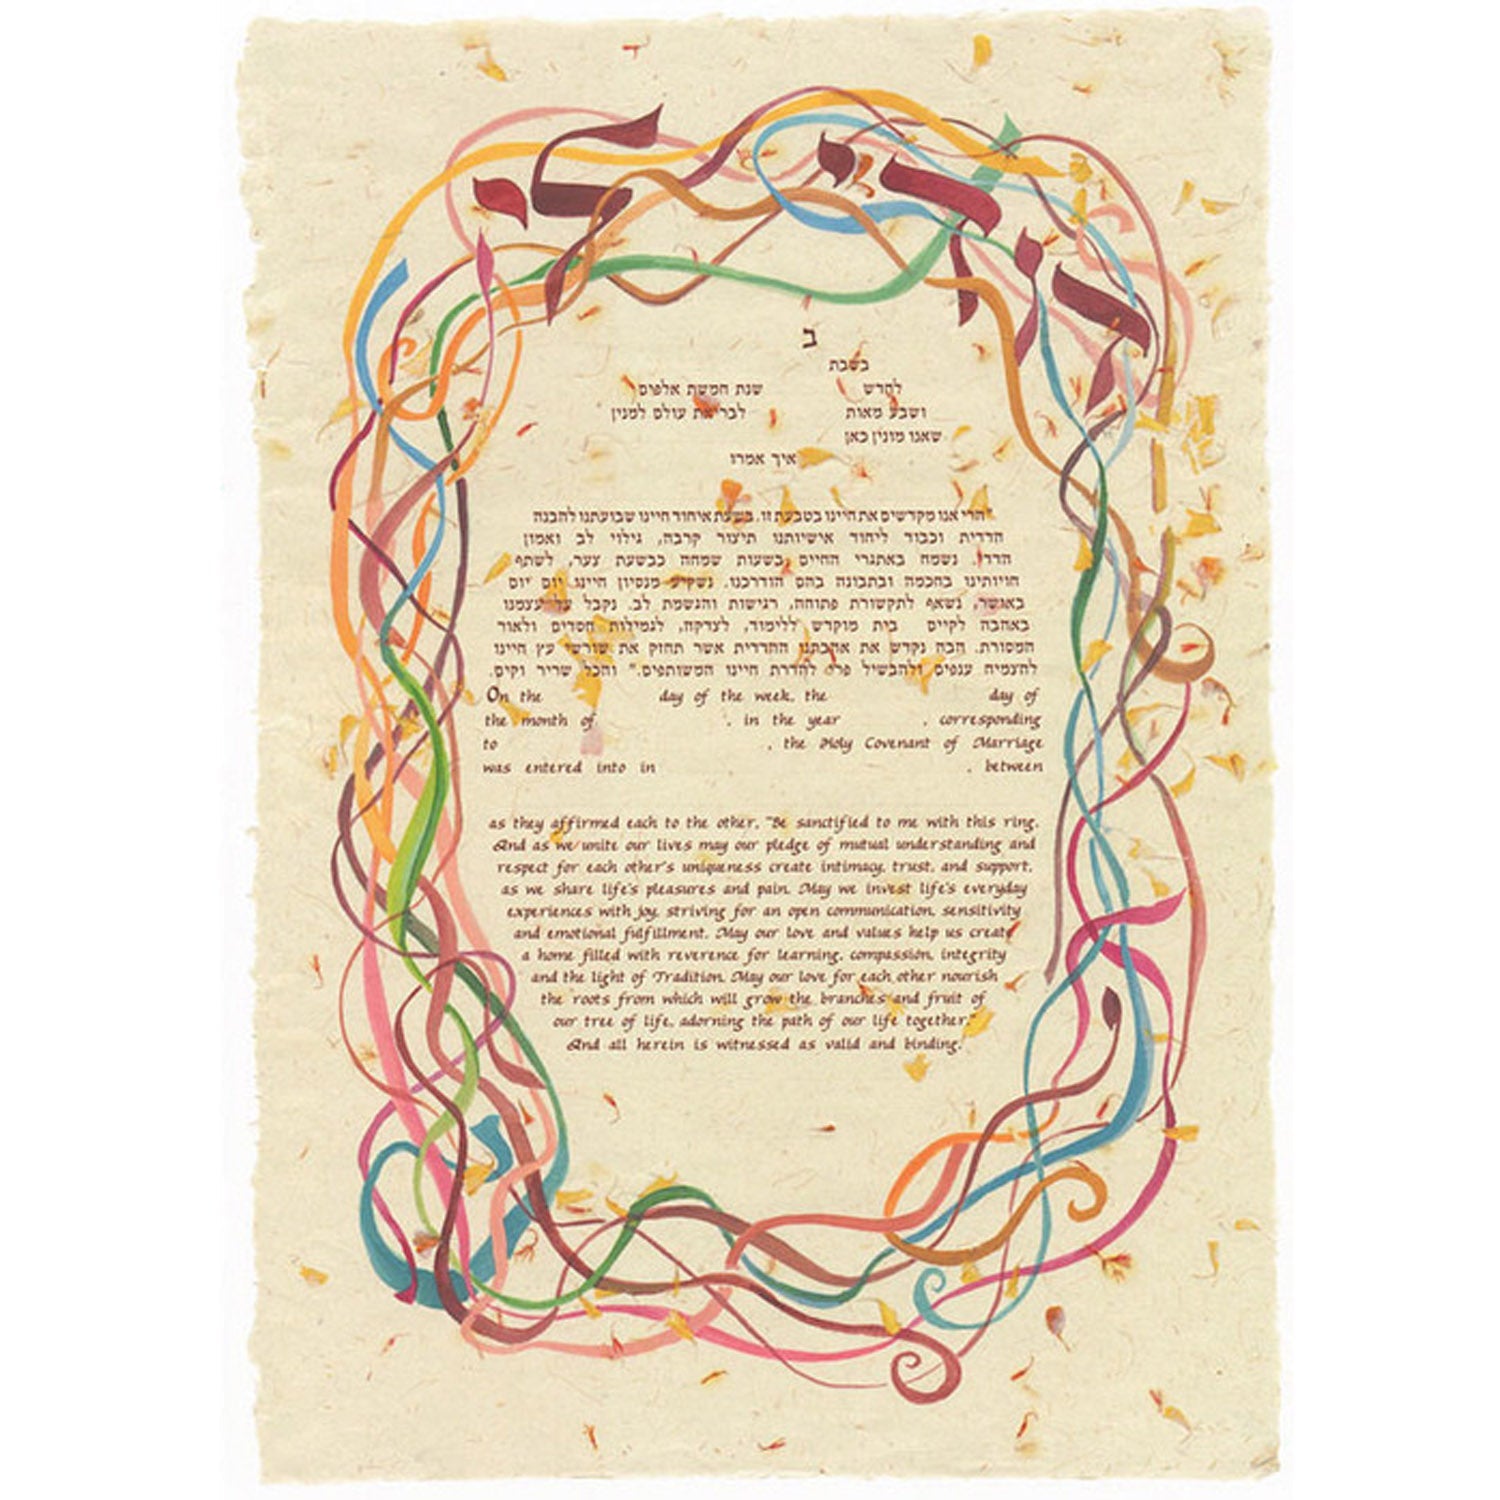 ב
בשבת
לחדש שנת חמשת אלפים
ושבע מאות לבריאת עולם למנין
שאנו מונין כאן
איך אמרו
"הרי אנו מקדשים את חיינו בטבעת זו. בשעת איחוד חיינו שבועתנו להבנה
הדדית וכבוד ליחוד אישיותנו תיצור קרבה, גילוי לב ואמון
הדדי. נשמח באתגרי החיים בשעות שמחה כבשעת צער, לשתף
חויותינו בחכמה ובתבונה בהם הודרכנו. נשקיע מנסיון חיינו יום יום
באושר, נשאף לתקשורת פתוחה, רגישות והגשמת לב. נקבל על עצמנו
באהבה לקיים בית מוקדש ללימוד, לצדקה, לגמילות חסדים ולאור
המסורת. הבה נקדש את אהבתנו ההדדית אשר תחזק את שורשי עץ חיינו
להצמיח ענפים ולהבשיל פרי להדרת חיינו המשותפים." והכל שריר וקים.
On the day of the week, the day of
the month of , in the year , corresponding
to , the Holy Covenant of Marriage
was entered into in , between
as they affirmed each to the other, "Be sanctified to me with this ring.
And as we unite our lives may our pledge of mutual understanding and
respect for each other's uniqueness create intimacy, trust, and support,
as we share life's pleasures and pain. May we invest life's everyday
experiences with joy, striving for an open communication, sensitivity
and emotional fulfillment. May our love and values help us create
a home filled with reverence for learning, compassion, integrity
and the light of Tradition. May our love for each other nourish
the roots from which will grow the branches and fruit of
our tree of life, adorning the path of our life together."
And all herein is witnessed as valid and binding.